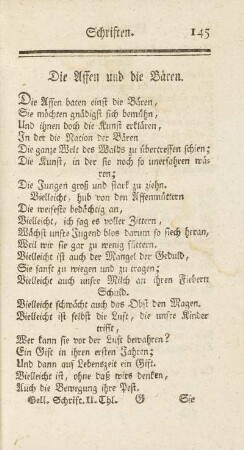 Schriften. 145
Die Affen und die Bären.
Die Affen baten einst die Bären,
Sie möchten gnädigst sich bemühn,
Und ihnen doch die Kunst erklären,
In der die Nation der Bären
Die ganze Welt des Walds zu übertreffen schien;
Die Kunst, in der sie noch so unerfahren wä-
ren;
Die Jungen groß und stark zu ziehn.
Vielleicht, hub von den Affenmüttern
Die weiseste bedächtig an,
Vielleicht, ich sag es voller Zittern,
Wächst unsre Jugend blos darum so siech heran,
Weil wir sie gar zu wenig füttern.
Vielleicht ist auch der Mangel der Geduld,
Sie sanft zu wiegen und zu tragen;
Vielleicht auch unsre Milch an ihren Fiebern
Schuld.
Vielleicht schwächt auch das Obst den Magen.
Vielleicht ist selbst die Luft, die unsre Kinder
trifft,
Wer kann sie vor der Luft bewahren?
Ein Gift in ihren ersten Jahren;
Und dann auf Lebenszeit ein Gift.
Vielleicht ist, ohne daß wirs denken,
Auch die Bewegung ihre Pest.
Gell. Schrift. II. Thl. G Sie